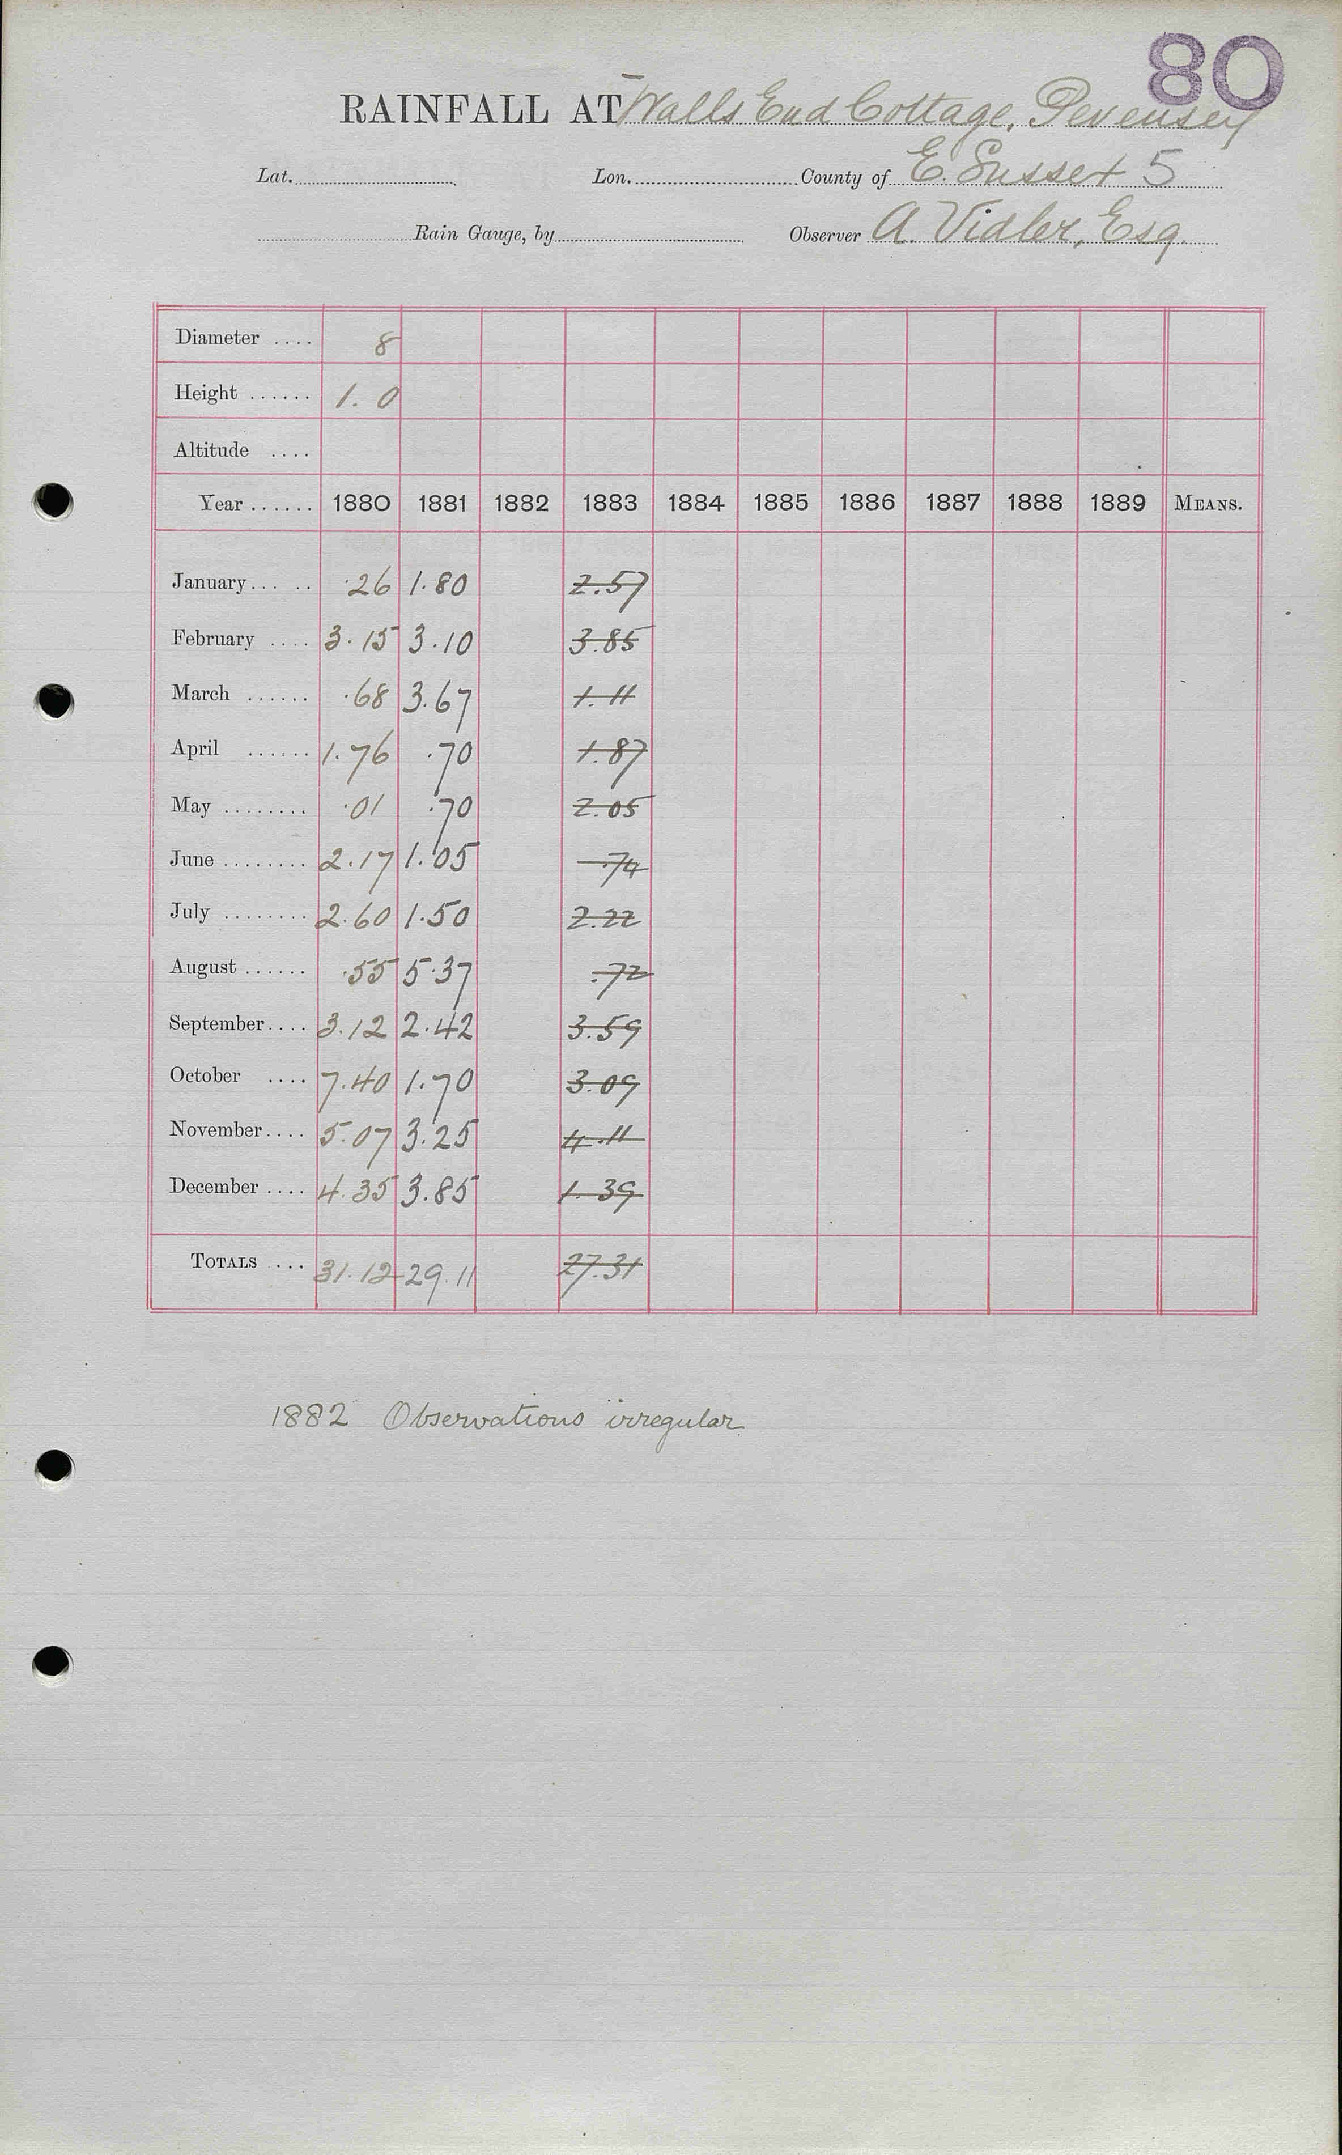 80
RAINFALL AT Walls End Cottage, Pevensey
Lat. Lon. County of E. Sussex 5
Rain Gauge, by Observer A. Vidler, Esq.
Diameter .... 8
Height ...... 1.0
Altitude ....
Year ...... 1880 1881 1882 1883 1884 1885 1886 1887 1888 1889 MEANS.
January... .. .26 1.80 2.57
February .... 3.15 3.10 3.85
March ...... .68 3.67 1.11
April ...... 1.76 .70 1.87
May ........ .01 .70 2.05
June ........ 2.17 1.05 .74
July ........ 2.60 1.50 2.22
August ...... .55 5.37 .72
September.... 3.12 2.42 3.59
October .... 7.40 1.70 3.09
November.... 5.07 3.25 4.11
December .... 4.35 3.85 1.39
TOTALS .... 31.12 29.11 27.31
1882 Observations irregular